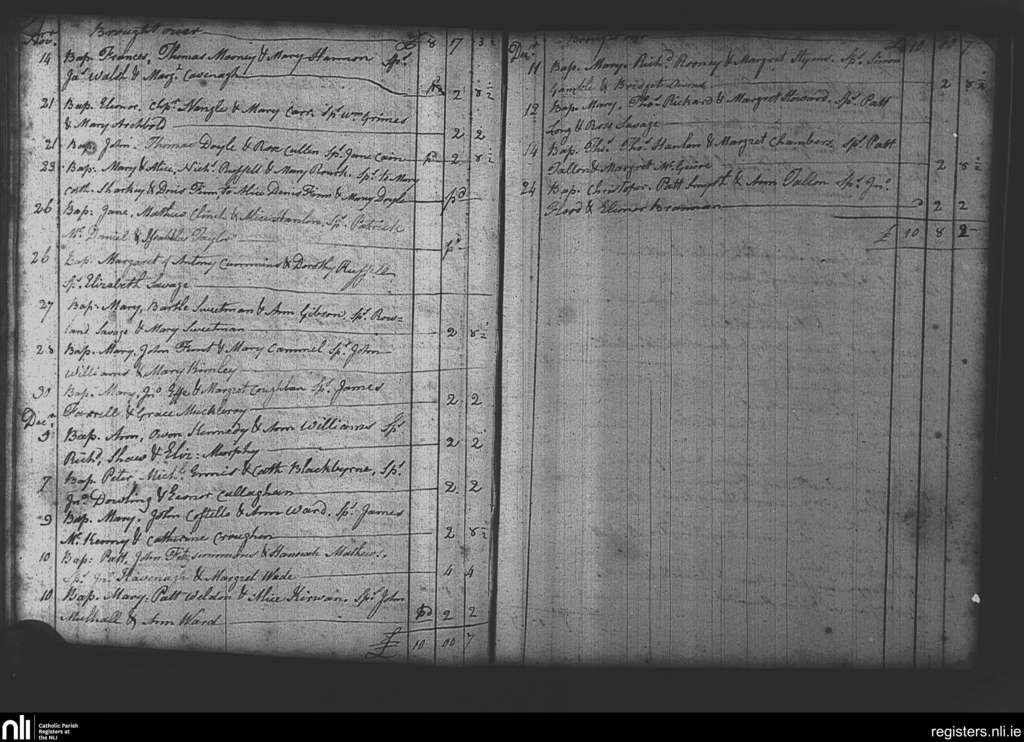 Nov.r Brought over £ 8 17 3½
14 Bap. Frances, Thomas Mooney & Mary Harmon Sp.s
Ja.s Walsh & Marg.t Cavenagh 2 8½
21 Bap. Elenor, Chr.s Nangle & Mary Carr Sp.s W.m Grimes
& Mary Archbold 2 2
21 Bap. John Thomas Doyle & Rose Cullen Sp.s Jane Carr pd 2 8½
23 Bap. Mary & Alice, Nich.s Russell & Mary Rourk. Sp.s to Mary
Cath. Sharkey & Denis Finn, to Alice Denis Finn & Mary Doyle pd
26 Bap. Jane, Mathew Clinch & Alice Hanlon. Sp.s Patrick
Mc Daniel & Isabella Taylor pd
26 Bap. Margaret of Antony Cummins & Dorothy Russell
Sp.s Elizabeth Savage
27 Bap. Mary, Bartle Sweetman & Ann Gibson, Sp.s Row=
land Savage & Mary Sweetman 2 8½
28 Bap. Mary, John Front & Mary Cammel Sp.s John
Williams & Mary Birmley
30 Bap. Mary, Jn.o & Margret Coughlan Sp.s James
Farrell & Grace Muckleroy 2 2
Dec.r
5 Bap. Ann, Owen Kennedy & Ann Williams Sp.s
Rich.d Shaw & Eliz: Murphy 2 2
7 Bap. Peter, Mich.l Ennis & Cath Blackbyrne, Sp.s
Jn.o Dowling & Elenor Callaghan 2 2
9 Bap. Mary, John Costello & Ann Ward. Sp.s James
Mc Kenny & Catherine Croughan 2 8½
10 Bap: Patt, John Fitzsimmons & Hannah Mathews.
Sp.s Jn.o Kavenagh & Margret Wade 4 4
10 Bap. Mary. Patt Weldon & Alice Kirwan. Sp.s John
Mulhall & Ann Ward pd 2 2
£ 10 00 7
Dec.r Brought over £ 10 00 7
11 Bap. Mary. Rich.d Rooney & Margret Hyems. Sp.s Simon
Gamble & Bridget 2 8½
12 Bap. Mary, Tho.s Rickard & Margret Howard, Sp.s Patt
Long & Rose Savage
14 Bap. Tho.s Tho.s Hanlon & Margret Chambers, Sp.s Patt
Tallon & Margret McGuire 2 8½
24 Bap. Christoper. Patt Smyth & Ann Tallon Sp.s Jn.o
Heard & Elenor Brannan 2 2
£ 10 8 2
nli Catholic Parish
Registers at
the NLI
registers.nli.ie